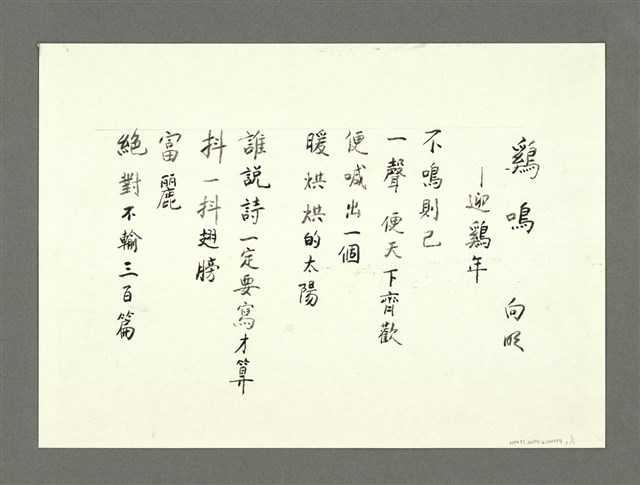 鷄鳴 向明
—迎鷄年
不鳴則已
一聲便天下齊歡
便喊出一個
暖烘烘的太陽
誰説詩一定要寫才算
抖一抖翅膀
富麗
絕對不輸三百篇